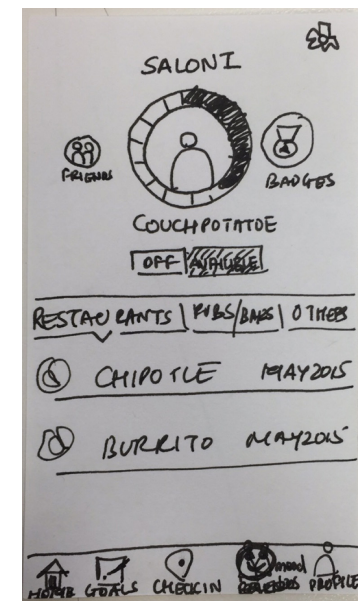 SALONI
FRIENDS
BADGES
COUCHPOTATOE
OFF AVAILABLE
RESTAURANTS PUBS/BARS OTHERS
CHIPOTLE MAY2015
BURRITO MAY2015
HOME GOALS CHECKIN mood REWARDS PROFILE